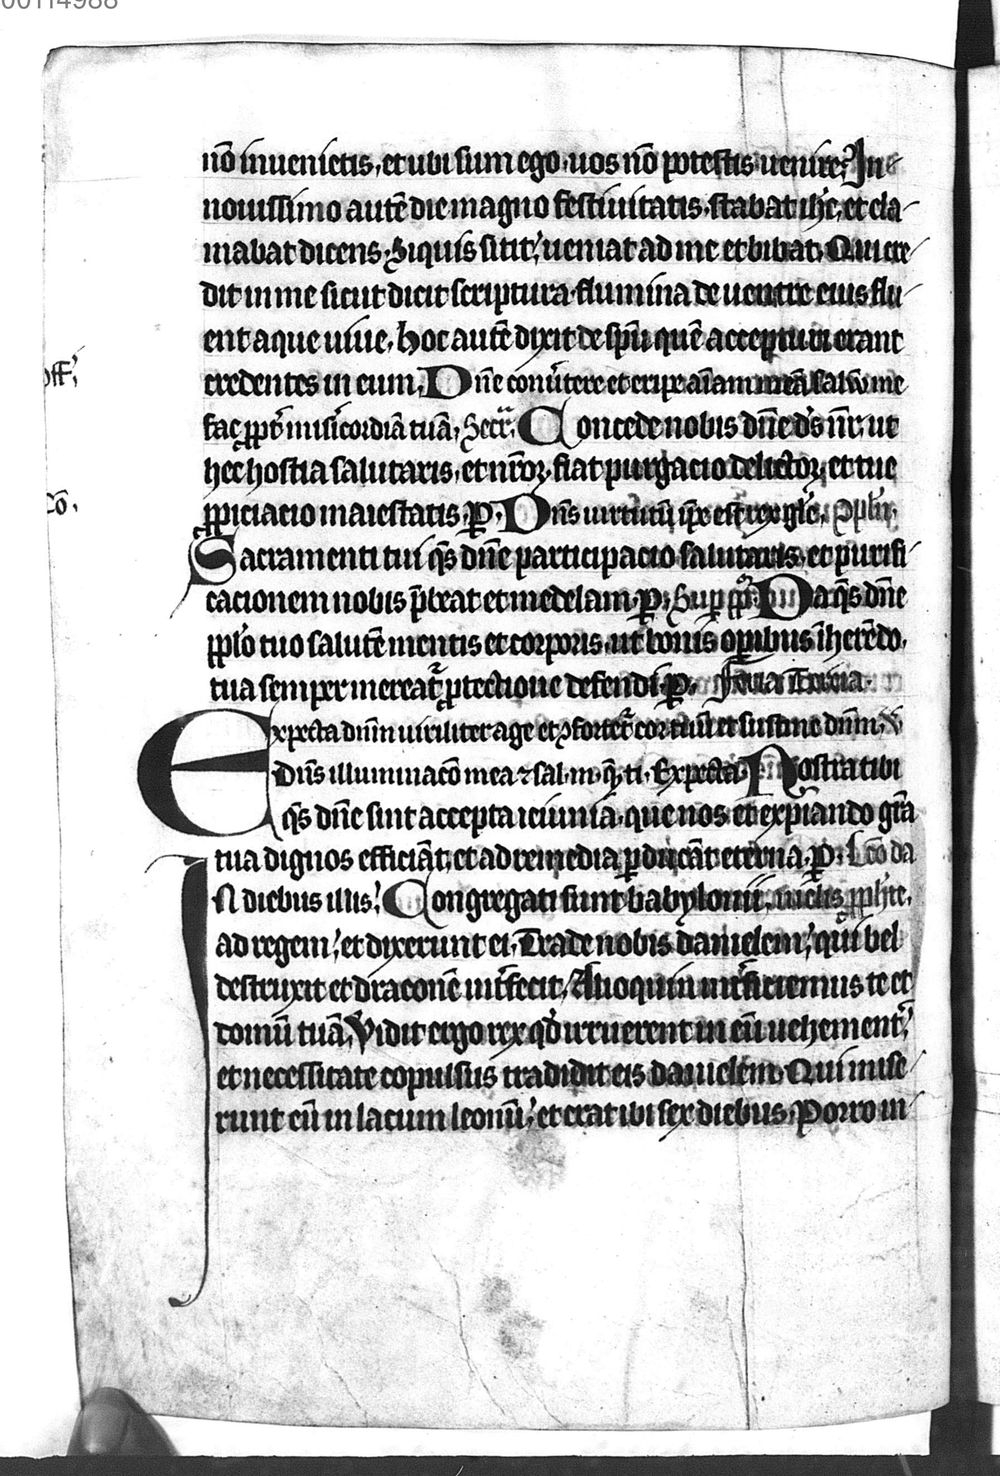 00114988
nō inuenietis. et ubi sum ego. uos nō potestis uenire. In
nouissimo autē die magno festiuitatis. stabat ihc. et cla
mabat dicens. Siquis sitit. ueniat ad me et bibat. Qui cre
dit in me sicut dicit scriptura. flumina de uentre eius flu
ent aque uiue. hoc autē dixit de spū quē accepturi erant
off.
credentes in eum. Dn̄e conūtere et eripe aīam meā saluū me
fac ꝓpt̄ misīcordiā tuā. Secr̄. Concede nobis dn̄e ds̄ nr̄. ut
hec hostia salutaris. et nr̄oꝝ fiat purgacio delictoꝝ. et tue
cō.
ꝓpiciacio maiestatis. ꝑ. Dn̄s uirtutū ip̄e est rex glē.
Sacramenti tui qs̄ dn̄e participacio salutaris. et purifi
cacionem nobis p̄beat et medelam. ꝑ. Suꝑ Da qs̄ dn̄e
pplō tuo salutē mentis et corporis. ut bonis oꝑibus īherēdo.
tua semper mereat̄ ꝓtectione defendi. ꝑ. Feria Tercia.
Expecta dn̄m uiriliter age et ꝯfortet̄ cor tuū et sustine dn̄m.
Dn̄s illuminacō mea ⁊ sal. m. q̄. ti. Expecta Nostra tibi
qs̄ dn̄e sint accepta ieiunia. que nos et expiando gr̄a
tua dignos efficiāt. et ad remedia ꝑducāt eterna. ꝑ. Lcō da
In diebus illis. Congregati sunt babylonii. ꝓphe.
ad regem. et dixerunt ei. Trade nobis danielem. qui bel
destruxit et draconē int̄fecit. Alioquin int̄ficiemus te et
domū tuā. Vidit ergo rex qd̄ irruerent in eū uehement̄.
et necessitate copulsus tradidit eis danielem. Qui mise
runt eū in lacum leonū. et erat ibi sex diebus. Porro in